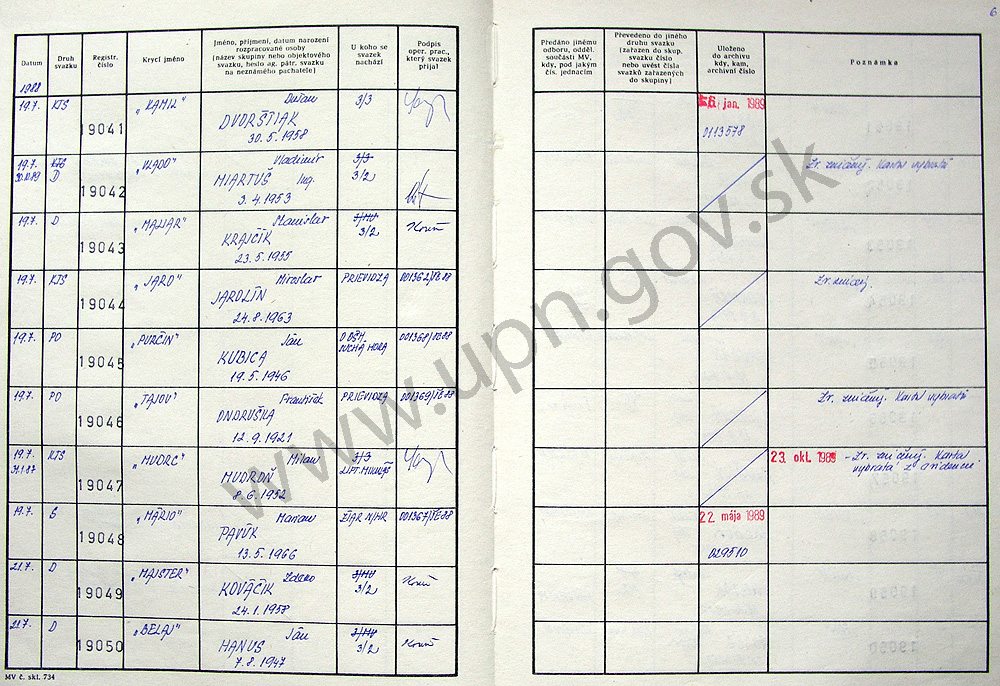 6
Datum
Druh svazku
Registr. číslo
Krycí jméno
Jméno, příjmení, datum narození rozpracované osoby (název skupiny nebo objektového svazku, heslo ag. pátr. svazku na neznámého pachatele)
U koho se svazek nachází
Podpis oper. prac., který svazek přijal
Předáno jinému odboru, odděl. součásti MV, kdy, pod jakým čís. jednacím
Převedeno do jiného druhu svazku (zařazen do skup. svazku číslo nebo uvést čísla svazků zařazených do skupiny)
Uloženo do archivu kdy, kam, archivní číslo
Poznámka
1988
19.7. KTS 19041 „KAMIL" Dušan 3/3
DVORŠTIAK
30.5.1958
6. jan. 1989
0113578
19.7. KTS 19042 „VLADO" Vladimír 3/3
D MIARTUŠ Ing. 3/2
3.4.1953
Zv. zničený. Karta vybratá
19.7. D 19043 „MALIAR" Stanislav
KRAJČÍK 3/2
23.5.1955
19.7. KTS 19044 „JARO" Miroslav PRIEVIDZA 001362/
JAROLÍN
24.8.1963
Zv. zničený.
19.7. PO 19045 „PURČIN" Ján
KUBICA SUCHÁ HORA
19.5.1946
19.7. PO 19046 „TAJOV" František PRIEVIDZA 001369/
ONDRUŠKA
12.9.1921
Zv. zničený. Karta vybratá
19.7. KTS 19047 „MUDRC" Milan 3/3
MUDROŇ LIPT. MIKULÁŠ
8.6.1952
23. okt. 1989 - Zv. zničený. Karta
vybratá z evidencie
19.7. 19048 „MÁRIO" Marian ŽIAR N/HR 001367/
PAVÚK
13.5.1966
22. mája 1989
029510
21.7. D 19049 „MAJSTER" Zdeno
KOVÁČIK 3/2
24.1.1958
21.7. D 19050 „BELAJ" Ján
HANUS 3/2
7.8.1947
MV č. skl. 734
www.upn.gov.sk